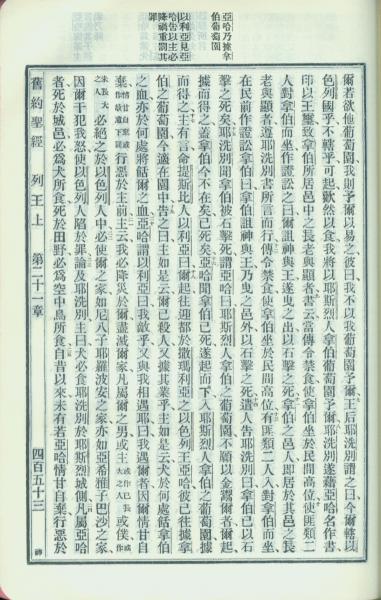 亞哈乃據拿
伯葡萄園
以利亞見亞
哈告以主必
降禍重罰其
罪
爾若欲他葡萄園我則予爾以易之彼曰我不以我葡萄園予爾王后耶洗別謂之曰今爾轄以
色列國乎不轄乎可起歡然以食我將以耶斯列人拿伯葡萄園予爾耶洗別遂藉亞哈名作書
印以王璽致拿伯所居邑中之長老與顯者書云當傳令禁食使拿伯坐於民間高位使匪類二
人對拿伯而坐作證訟之曰爾詛神與王遂曳之出以石擊之死拿伯之邑人即居於其邑之長
老與顯者遵耶洗別書所言而行傳令禁食使拿伯坐於民間高位有匪類二人入對拿伯而坐
在民前作證訟拿伯曰拿伯詛神與王乃曳之邑外以石擊之死遣人告耶洗別曰拿伯已以石
擊之死矣耶洗別聞拿伯被石擊死謂亞哈曰耶斯列人拿伯之葡萄園不願以金鬻爾者爾起
據而得之蓋拿伯今不在矣已死矣亞哈聞拿伯已死遂起而下入耶斯列人拿伯之葡萄園據
而得之主有言命提斯比人以利亞曰爾起往迎都於撒瑪利亞之以色列王亞哈彼已往據拿
伯之葡萄園今適在園中告之曰主如是云爾已殺人又據其業乎主如是云犬於何處餂拿伯
之血亦於何處將餂爾之血亞哈謂以利亞曰我敵乎又與我相遇耶曰我遇爾者因爾情甘自
棄行惡於主前主云我必降災於爾盡滅爾家凡屬爾之男或主或僕
必絕之於以色列人中必使爾之家如尼八子耶羅波安之家亦如亞希雅子巴沙之家
因爾干犯我怒使以色列人陷於罪論及耶洗別主曰犬必食耶洗別於耶斯列城側凡屬亞哈
者死於城邑必為犬所食死於田野必為空中鳥所食自昔以來未有若亞哈情甘自棄行惡於
舊約聖經 列王上 第二十一章 四百五十三